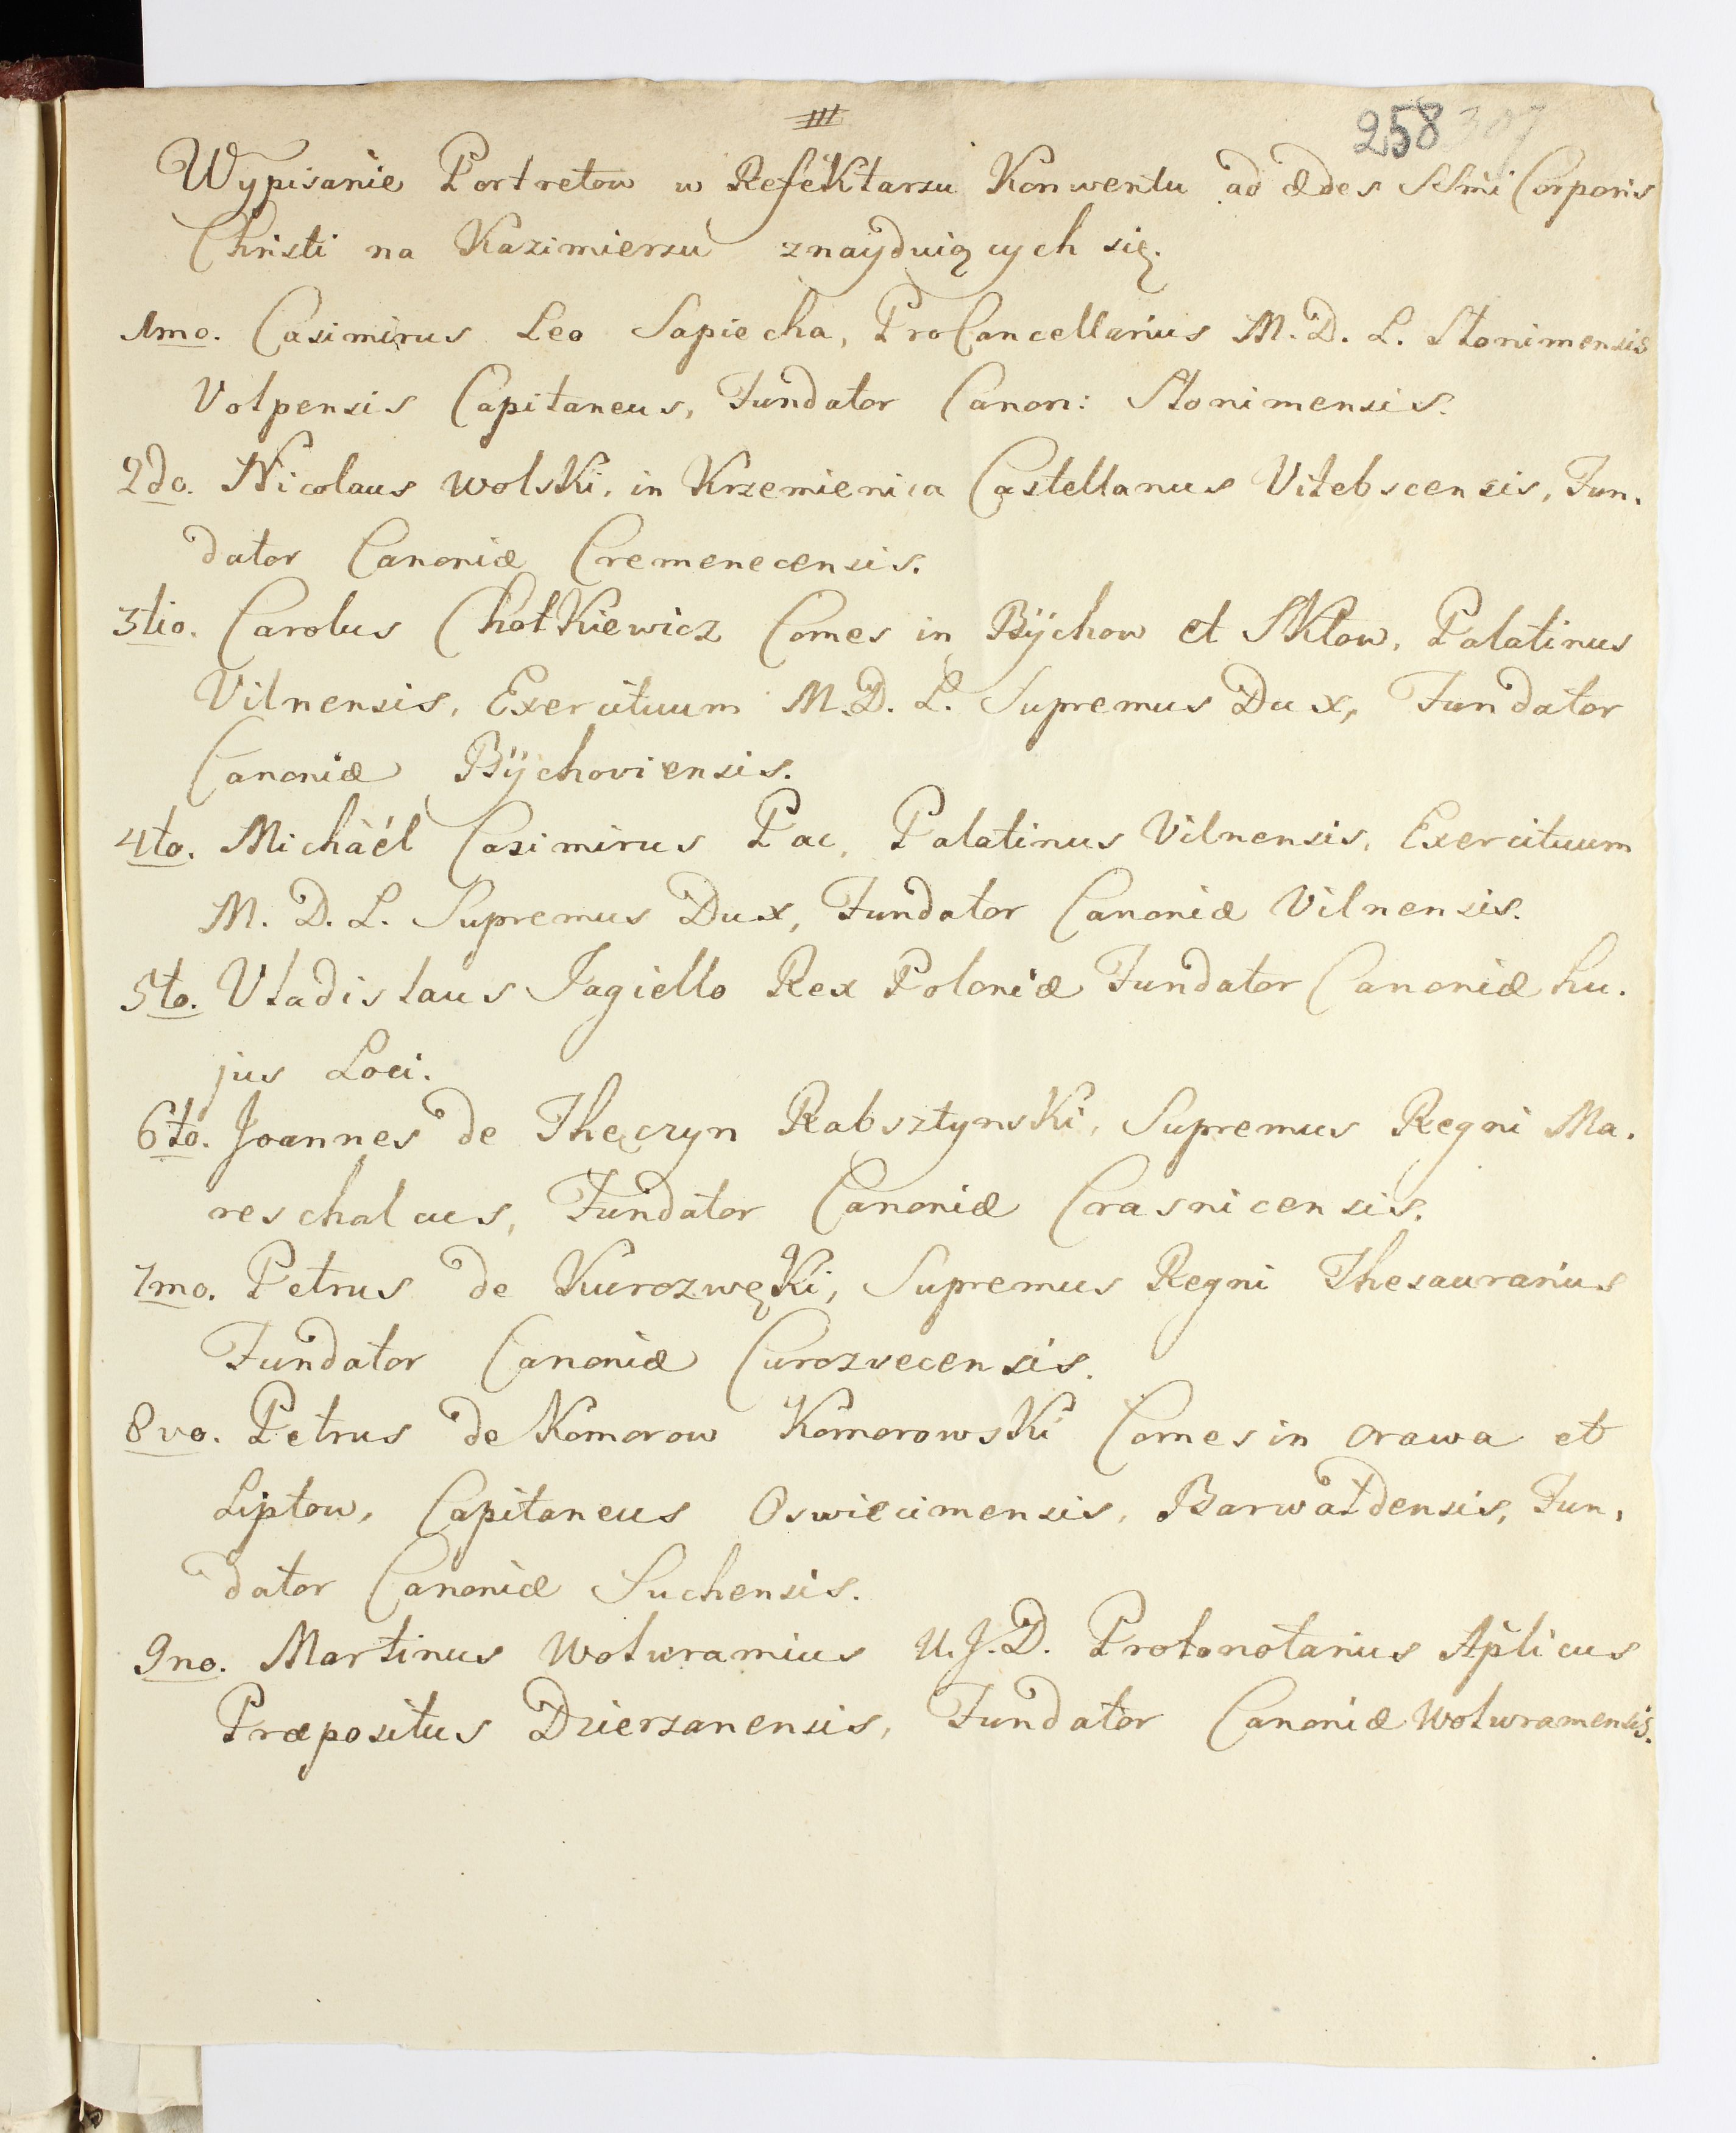 III
258 307
Wypisanie Portretow w Refektarzu Konwentu ad ædes SSmi Corporis
Christi na Kazimierzu znayduiących się.
1mo. Casimirus Leo Sapiecha, ProCancellarius M. D. L. Słonimensis
Volpensis Capitaneus, Fundator Canon: Słonimensis.
2do. Nicolaus Wolski, in Krzemienica Castellanus Vitebscensis, Fun.
dator Canoniæ Cremenecensis.
3tio. Carolus Chotkiewicz Comes in Bÿchow et Skłow, Palatinus
Vilnensis, Exercituum M. D. L. Supremus Dux, Fundator
Canoniæ Bÿchoviensis.
4to. Michaél Casimirus Pac, Palatinus Vilnensis, Exercituum
M. D. L. Supremus Dux, Fundator Canoniæ Vilnensis.
5to. Vladislaus Jagiello Rex Poloniæ Fundator Canoniæ hu.
jus Loci.
6to. Joannes de Thęczyn Rabsztynski, Supremus Regni Ma.
reschalcus, Fundator Canoniæ Crasnicensis.
7mo. Petrus de Kurozwęki, Supremus Regni Thesaurarius
Fundator Canoniæ Curozwecensis.
8vo. Petrus de Komorow Komorowski Comes in Orawa et
Liptow, Capitaneus Oswiecimensis, Barwałdensis, Fun,
dator Canoniæ Suchensis.
9no. Martinus Wolwramius U. J. D. Protonotarius Aplicus
Præpositus Dzierzanensis, Fundator Canoniæ Wolwramensis.